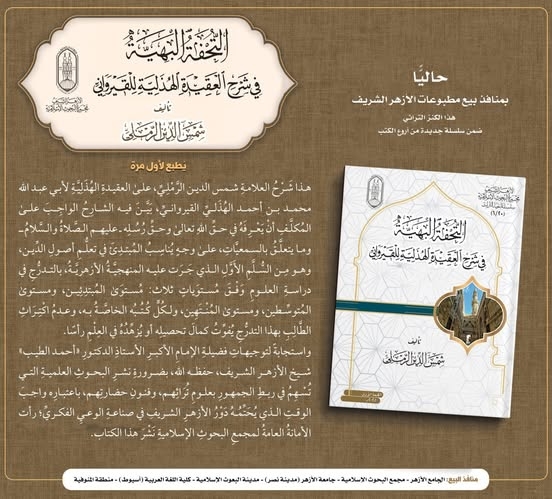 التحفة البهية
في شرح العقيدة الهذلية للقيرواني
تأليف
شمس الدين الرملي
الأزهر الشريف
مجمع البحوث الإسلامية
حاليًا
بمنافذ بيع مطبوعات الأزهر الشريف
هذا الكنز التراثي
ضمن سلسلة جديدة من أروع الكتب
يطبع لأول مرة
هذا شَرْحُ العلامةِ شمس الدين الرَّمْلِيِّ، على العقيدةِ الهُذَليَّةِ لأبي عبد الله
محمد بن أحمد الهُذَليِّ القيروانيِّ، بَيَّنَ فيه الشارحُ الواجبَ على
المُكلَّفِ أنْ يَعْرِفَهُ في حقِّ الله تعالى وحقِّ رُسُلِه -عليهم الصَّلاةُ والسَّلامُ-
وما يتعلَّقُ بالسمعيَّاتِ، على وجهٍ يُناسِبُ المُبتدِئَ في تعلُّمِ أصولِ الدِّين،
وهو مِنَ السُّلَّمِ الأوَّلِ الذي جَرَتْ عليه المنهجيَّةُ الأزهريَّةُ، بالتدرُّجِ في
دراسةِ العلومِ وَفْقَ مُسْتَوَيَاتٍ ثلاث: مُستوَى المُبتدِئِين، ومستوَى
المُتوسِّطِين، ومستوَى المُنْتَهِين، ولكلٍّ كُتُبُه الخاصَّةُ به، وعدمُ اكتراثِ
الطَّالِبِ بهذا التدرُّجِ يُفَوِّتُ كمالَ تحصيلِه أو يُزَهِّدُهُ في العِلْمِ رأسًا.
واستجابةً لتوجيهاتِ فضيلةِ الإمامِ الأكبرِ الأستاذِ الدكتورِ «أحمد الطيب»
شيخِ الأزهرِ الشريفِ، حفظه الله، بضرورةِ نشرِ البحوثِ العلميةِ التي
تُسْهِمُ في ربطِ الجمهورِ بعلومِ تُراثِهم، وفنونِ حضارتِهم، باعتبارِه واجبَ
الوقتِ الذي يُحَتِّمُهُ دَوْرُ الأزهرِ الشريفِ في صناعةِ الوعيِ الفكريِّ؛ رأت
الأمانةُ العامةُ لمجمعِ البحوثِ الإسلاميةِ نَشْرَ هذا الكتاب.
التحفة البهية
في شرح العقيدة الهذلية للقيرواني
تأليف
شمس الدين الرملي
منافذ البيع: الجامع الأزهر - مجمع البحوث الإسلامية - جامعة الأزهر (مدينة نصر) - مدينة البعوث الإسلامية - كلية اللغة العربية (أسيوط) - منطقة المنوفية